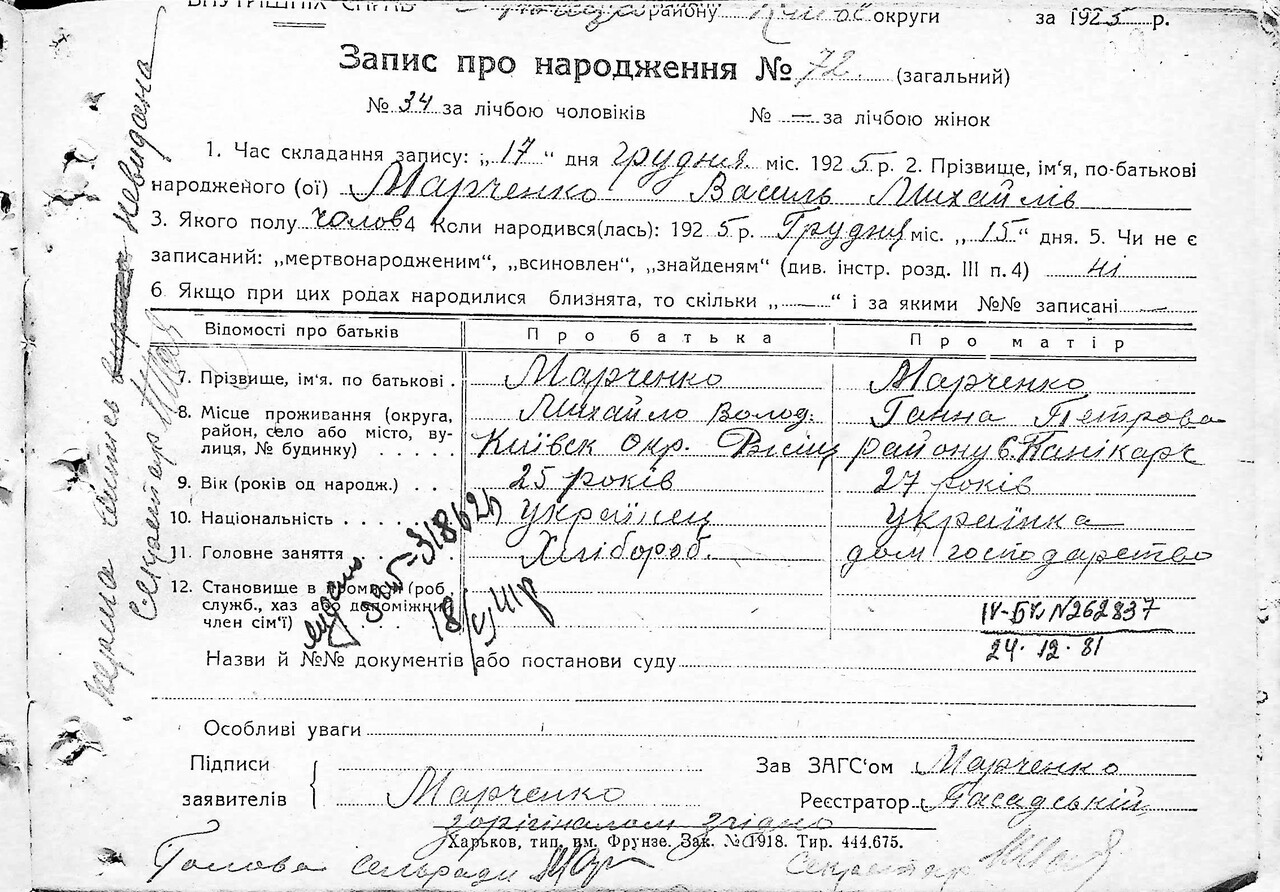 району округи за 1925 р.
Запис про народження № 72. (загальний)
№ 34 за лічбою чоловіків № — за лічбою жінок
1. Час складання запису: „17“ дня грудня міс. 1925 р. 2. Прізвище, ім'я, по-батькові
народженого (ої) Марченко Василь Михайлів
3. Якого полу чолов 4 Коли народився(лась): 1925 р. Грудня міс. „15“ дня. 5. Чи не є
записаний: „мертвонародженим“, „всиновлен“, „знайденям“ (див. інстр. розд. III п. 4) ні
6 Якщо при цих родах народилися близнята, то скільки „—“ і за якими №№ записані —
Відомості про батьків Про батька Про матір
7. Прізвище, ім'я. по батькові. Марченко Марченко
8. Місце проживання (округа, Михайло Волод. Ганна Петрова
район, село або місто, ву- Київск окр. району с.
лиця, № будинку)
9. Вік (років од народж.) 25 років 27 років
10. Національність Українец Українка
11. Головне заняття Хлібороб. дом господарство
12. Становище в (роб
служб., хаз або допоміжни
член сім'ї)
IV-БК N262837
24.12.81
Назви й №№ документів або постанови суду
Особливі уваги
Підписи Зав ЗАГС'ом Марченко
заявителів Марченко Реєстратор
з орігіналом згідно
Харьков, тип. им. Фрунзе. Зак. № 1918. Тир. 444.675.
Голова сельради Секретар
невидана
Секретар